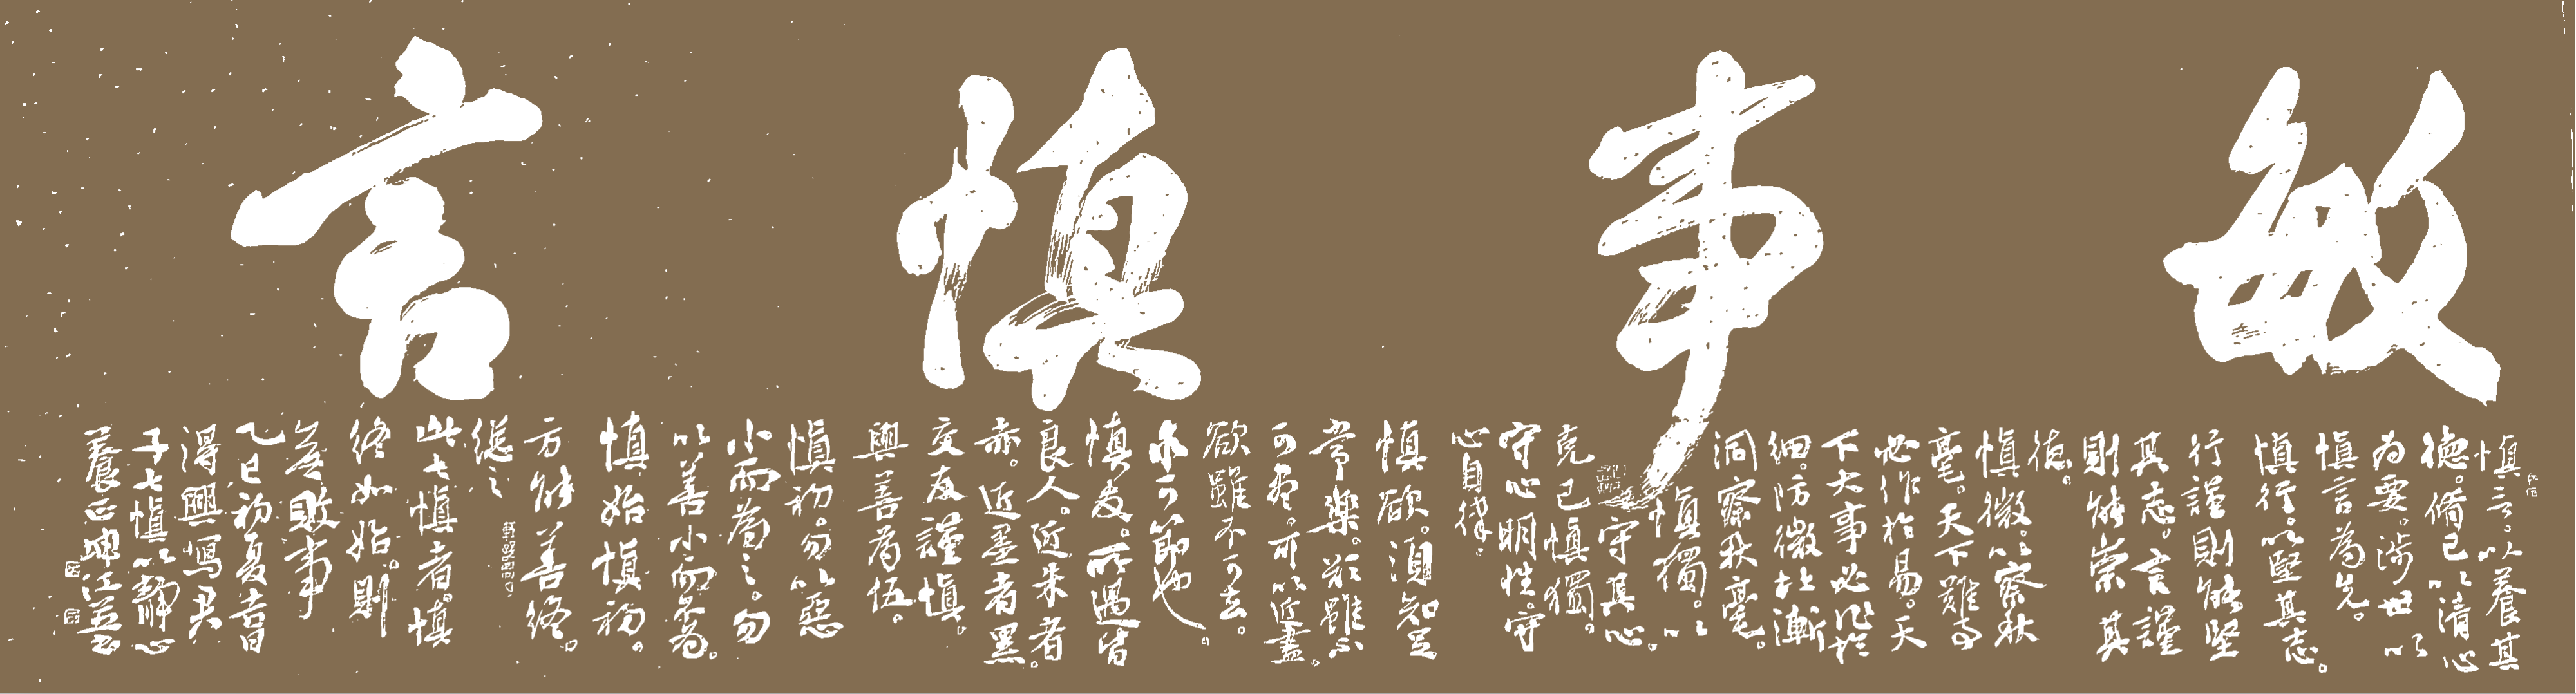 敏事慎言
慎言。以養其
德。脩己以清心
為要。涉世以
慎言為先。
慎行。以堅其志。
行謹則能堅
其志。言謹
則能崇其
德。
慎微。以察秋
毫。天下難事
必作於易。天
下大事必作於
細。防微杜漸
洞察秋毫。
慎獨。以
守其心。
克己慎獨。
守心明性。守
心自律。
慎欲。須知足
常樂。欲雖不
可盡。可以近盡。
欲雖不可去。
求可節也。
慎友。所遇皆
良人。近朱者
赤。近墨者黑。
交友謹慎。
與善為伍。
慎初。勿以惡
小而為之。勿
以善小而不為。
慎始慎初。
方能善終。
總之
此七慎者。慎
終如始。則
無敗事
乙巳初夏吉日
得興寫君
子七慎以靜心
養正